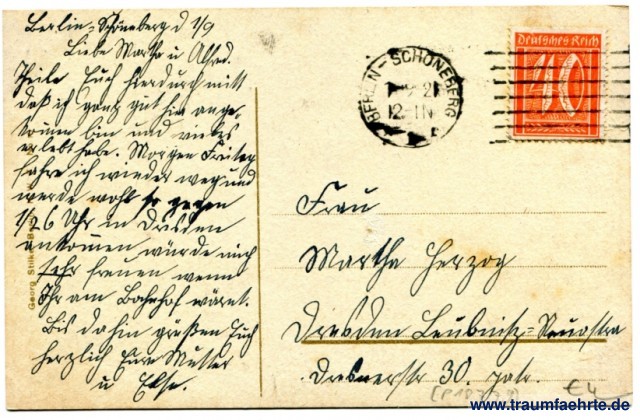 Berlin-Schöneberg d 1/9
Liebe Martha u Alfred.
Theile Euch hierdurch mitt
daß ich ganz gut hier ange-
kommen bin und vieles
erlebt habe. Morgen Freitag
fahre ich wieder weg und
werde wohl so gegen
1/2 6 Uhr in Dresden
ankommen würde mich
sehr freuen wenn
Ihr am Bahnhof wäret.
Bis dahin grüßen Euch
herzlich Eure Mutter
u Else.
Georg Stilke
BERLIN-SCHÖNEBERG
12-1N
Deutsches Reich
40
Frau
Martha Herzog
Dresden Leubnitz-Neuostra
30. patr.
€4
www.traumfaehrte.de